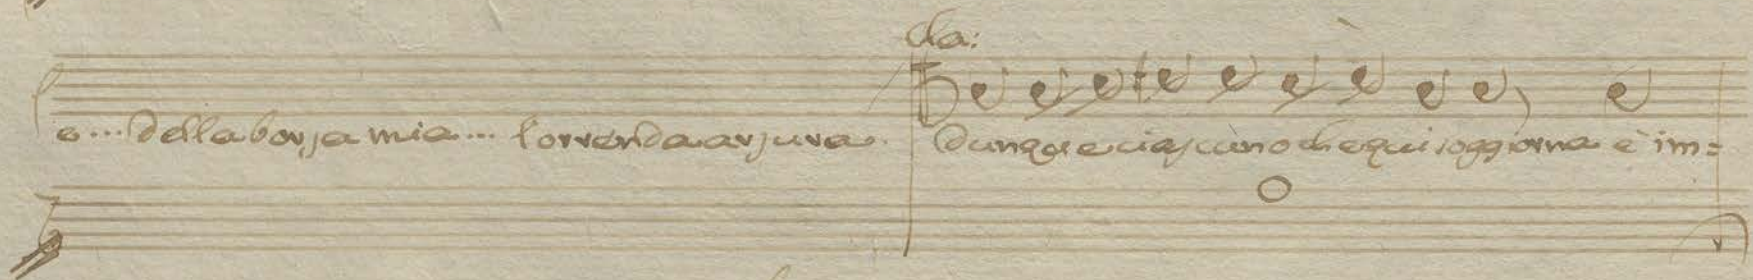 da:
e... della borsa mia... l'orrenda arsura. dunque ciascuno che qui soggiorna è im=